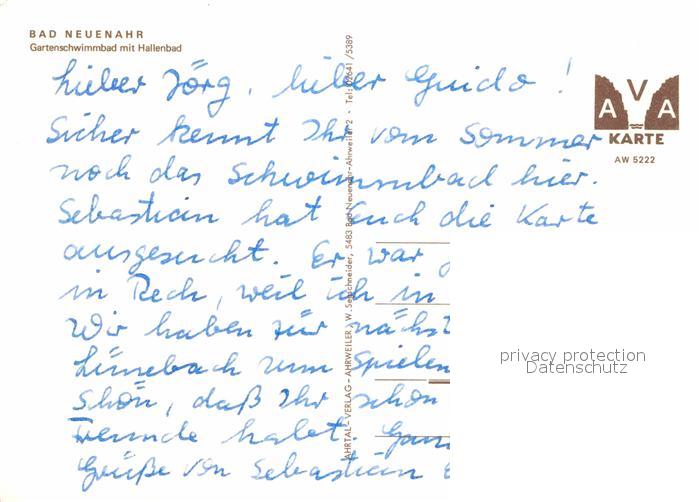 BAD NEUENAHR
Gartenschwimmbad mit Hallenbad
Lieber Jörg, lieber Guido!
Sicher kennt Ihr vom Sommer
noch das Schwimmbad hier.
Sebastian hat Euch die Karte
ausgesucht. Er war
in Rech, weil ich in
Wir haben für nächst
Lünebach zum Spielen
Schön, daß Ihr schon
Freunde habt.
Grüße von Sebastian
AVA
KARTE
AW 5222
AHRTAL-VERLAG-AHRWEILER, W. Sebschneider, 5483 Bad Neuenahr-Ahrweiler 2 · Tel. 02641/5389
privacy protection
Datenschutz